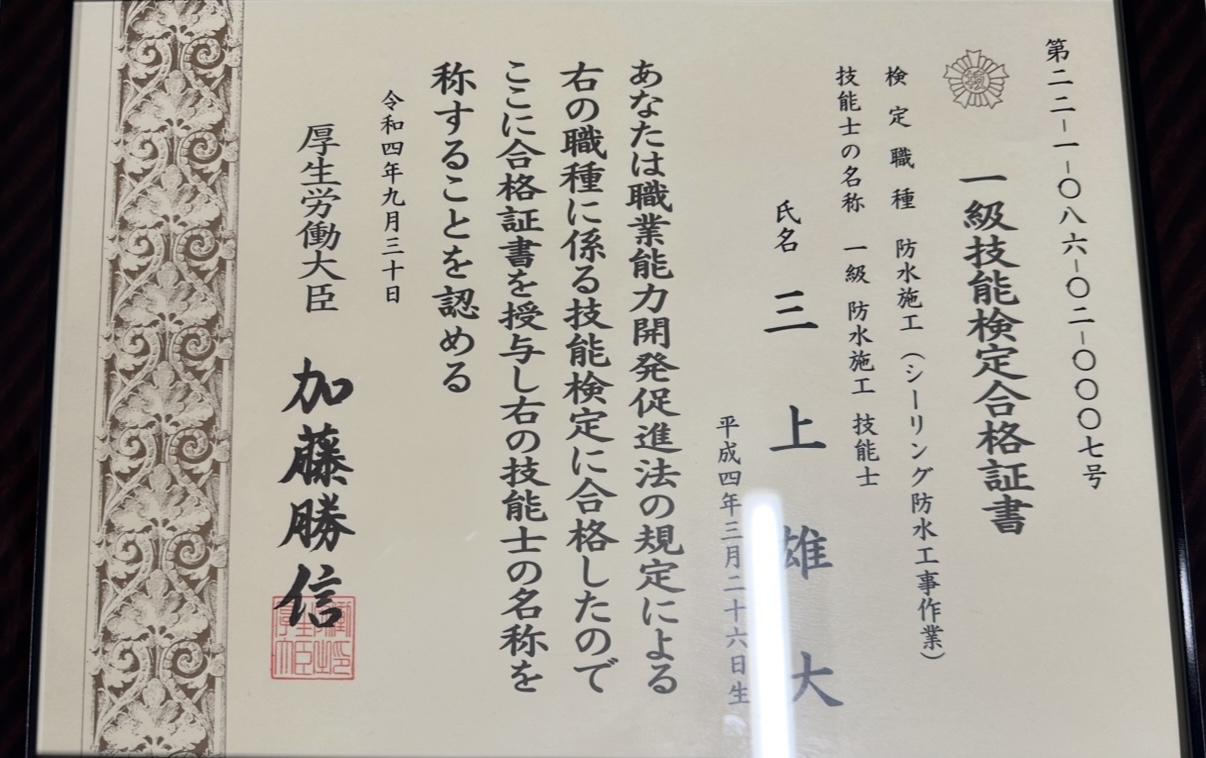 第二二-一-〇八六-〇二-〇〇〇七号
一級技能検定合格証書
検定職種 防水施工（シーリング防水工事作業）
技能士の名称 一級 防水施工 技能士
氏名 三上雄大
平成四年三月二十六日生
あなたは職業能力開発促進法の規定による
右の職種に係る技能検定に合格したので
ここに合格証書を授与し右の技能士の名称を
称することを認める
令和四年九月三十日
厚生労働大臣 加藤勝信